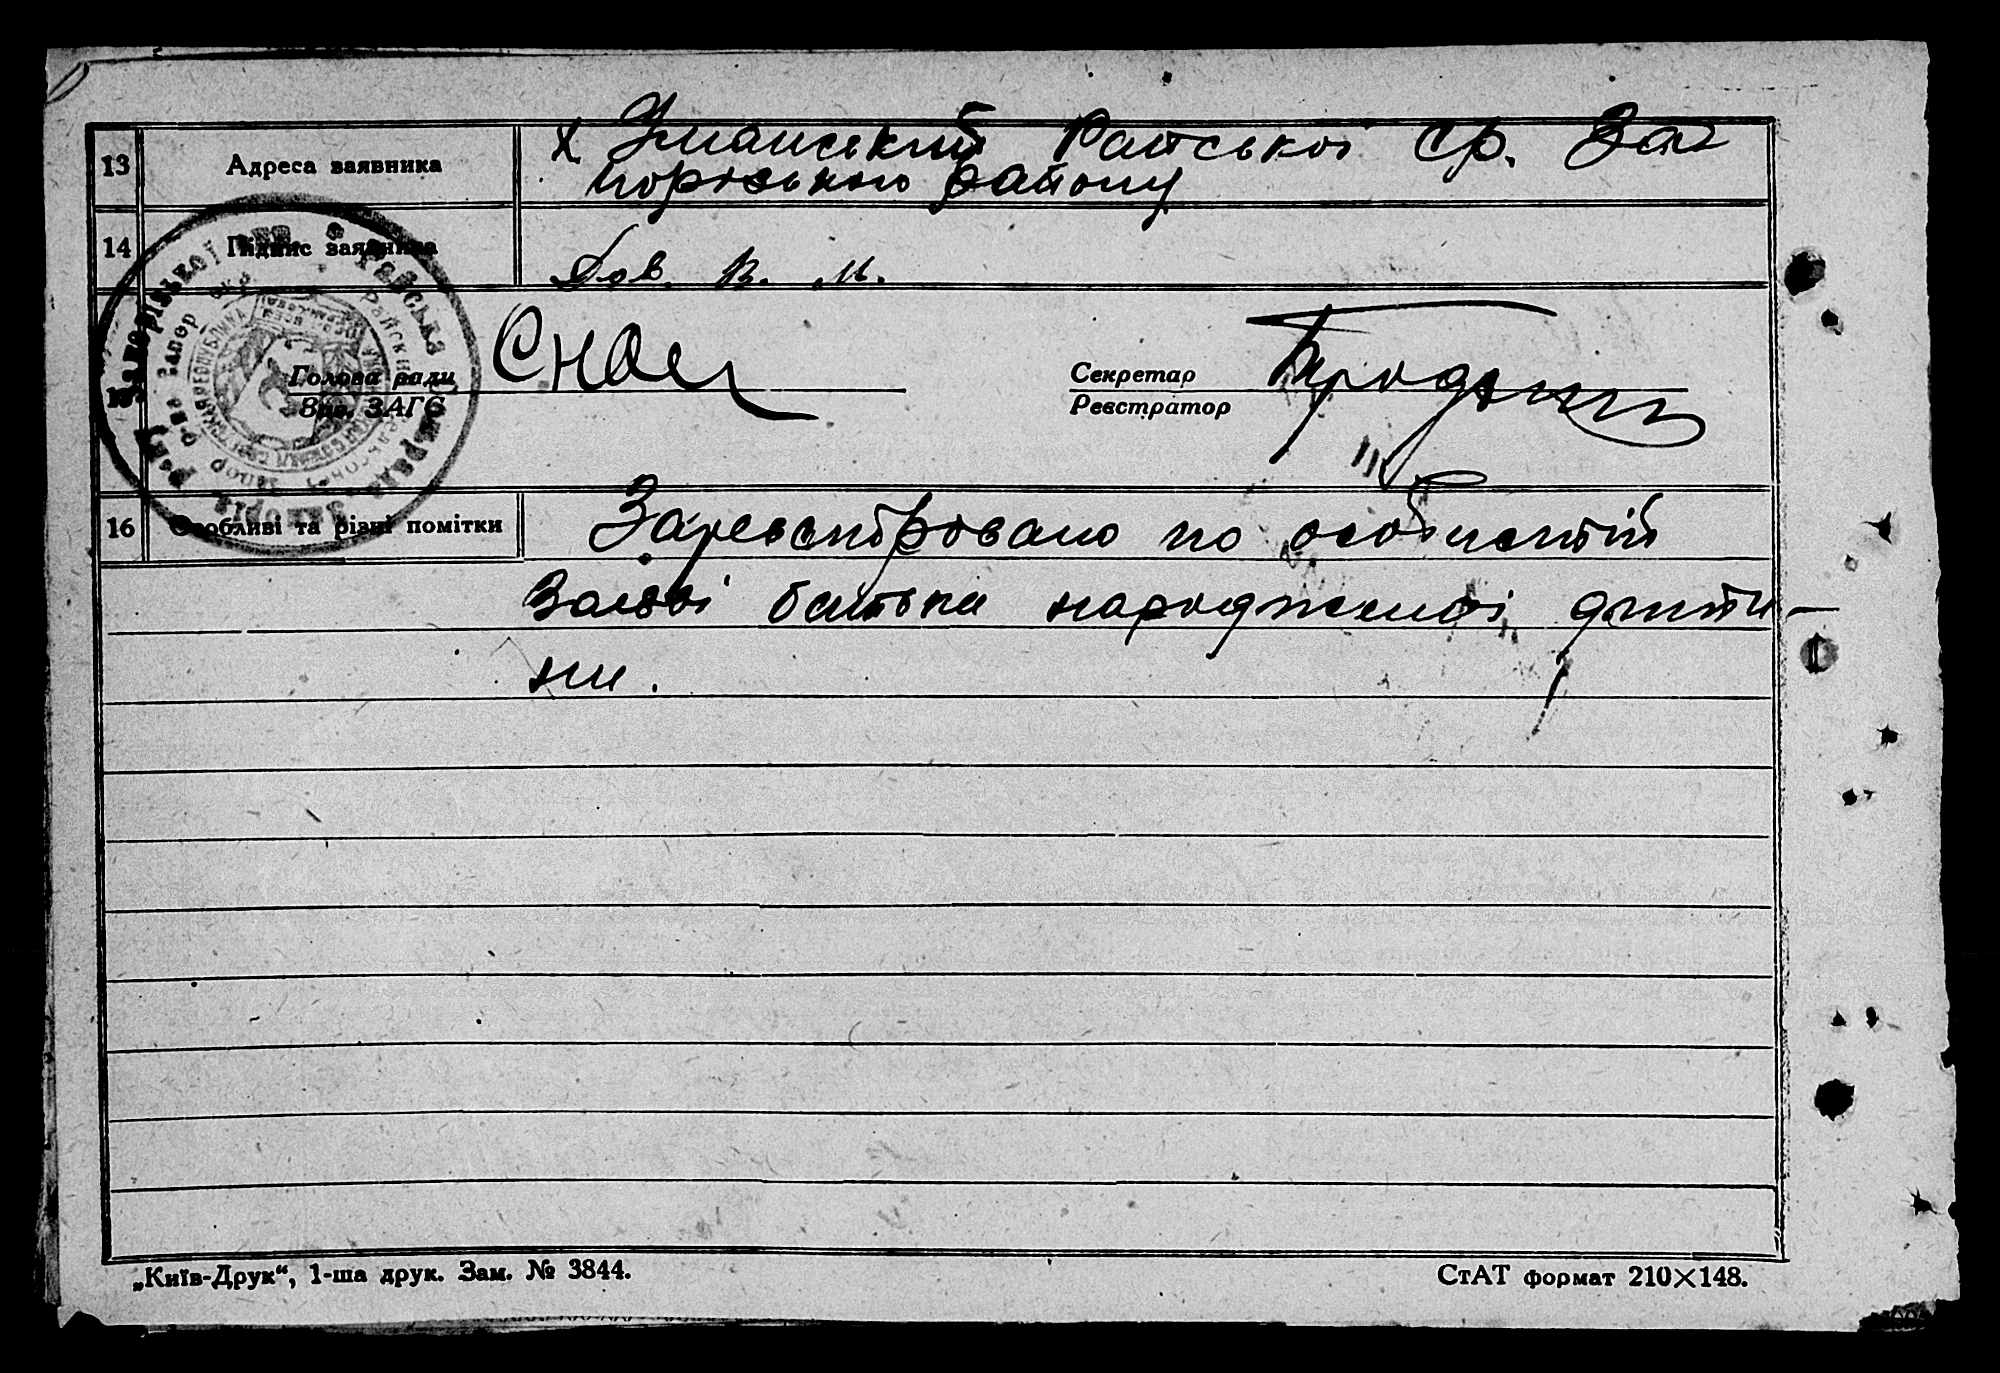 13 Адреса заявника х Уманський Райської ср. За-
порізького району
14 Підпис заявника
Голова ради
Зав. ЗАГС
Секретар
Реєстратор
16 Особливі та різні помітки Зареєстровано по особистій
Заяві батька народженої дити-
ни.
„Київ-Друк“, 1-ша друк. Зам. № 3844.
СтАТ формат 210×148.